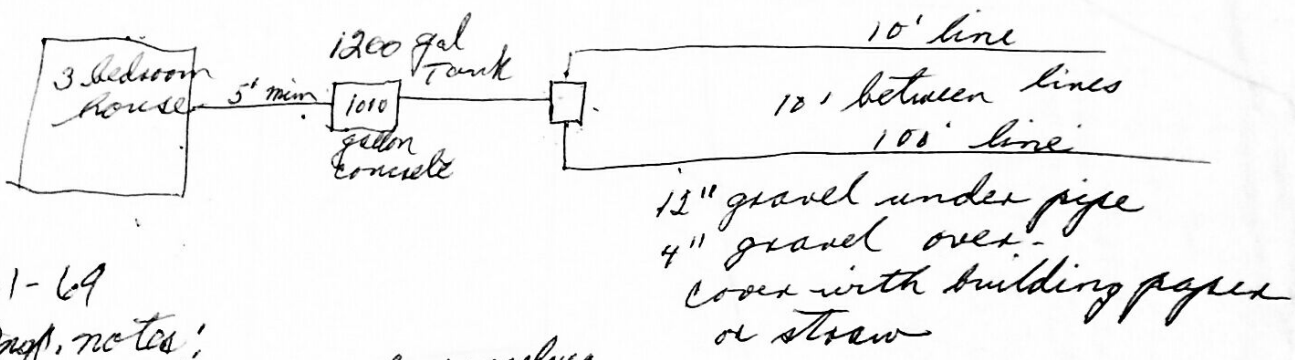 3 bedroom
house
5' min
1200 gal
Tank
1010
gallon
concrete
10' line
10' between lines
100' line
12" gravel under pipe
4" gravel over-
cover with building paper
or straw
1-69
notes: